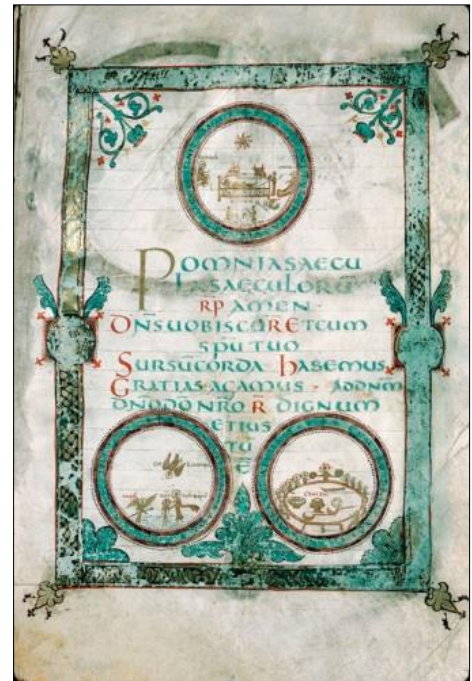 P OMNIA SAECU
LA SAECULORŪ
RP AMEN
DN̄S UOBISCŪ R ET CUM
SPŪ TUO
SURSŪ CORDA HABEMUS
GRATIAS AGAMUS AD DNM̄
DNŌ DŌ NRŌ R DIGNUM
ET IUS
TŪ
E